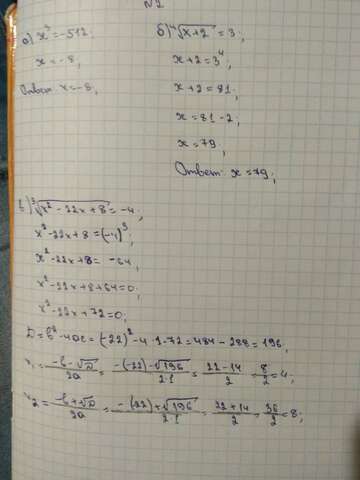 №2
а) x³ = -512,
x = -8,
Ответ: x = -8;
б) ⁴√x+2 = 3;
x+2 = 3⁴
x+2 = 81;
x = 81-2;
x = 79;
Ответ: x = 79;
в) ³√x²-22x+8 = -4;
x²-22x+8 = (-4)³;
x²-22x+8 = -64,
x²-22x+8+64=0;
x²-22x+72=0;
D = b²-4ac = (-22)²-4·1·72 = 484-288 = 196,
x₁ = -b-√D/2a = -(-22)-√196/2·1 = 22-14/2 = 8/2 = 4;
x₂ = -b+√D/2a = -(22)+√196/2·1 = 22+14/2 = 36/2 = 8;